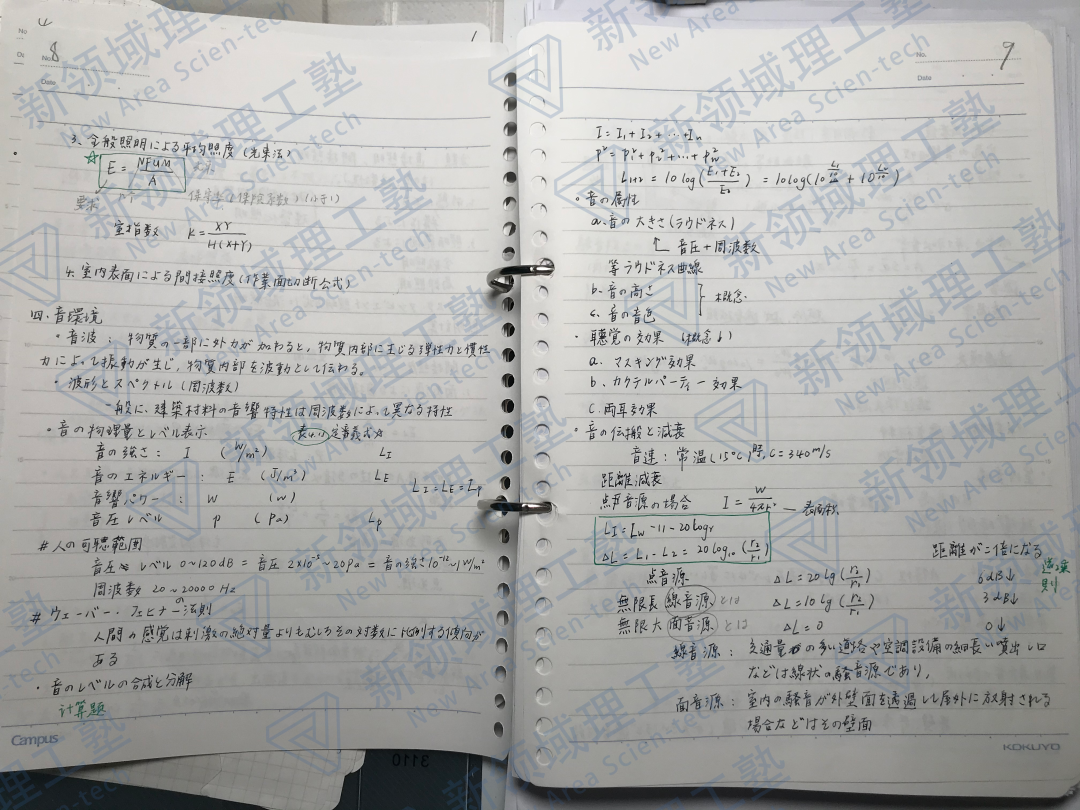 No. 8
Date
3. 全般照明による平均照度 (光束法)
☆ E = NFUM / A
室指数 K = XY / H(X+Y)
4. 室内表面による間接照度 (作業面切断公式)
四. 音環境
・音波 : 物質の一部に外力が加わると, 物質内部に生じる弾性力と慣性
力によって振動が生じ, 物質内部を波動として伝わる。
・波形とスペクトル (周波数)
一般に、建築材料の音響特性は周波数によって異なる特性
・音の物理量とレベル表示 定義式☆
音の強さ : I (W/m²) LI
音のエネルギー : E (J/m³) LE
LI = LE = Lp
音響パワー : W (W)
音圧レベル p (Pa) Lp
# 人の可聴範囲
音圧レベル 0~120dB = 音圧 2×10⁻⁵~20pa = 音の強さ 10⁻¹²~1W/m²
周波数 20~20000 Hz
# ウェーバー・フェヒナーの法則
人間の感覚は刺激の絶対量よりもむしろその対数に比例する傾向が
ある
・音のレベルの合成と分解
计算题
Campus
No. 9
Date
I = I₁ + I₂ + … + In
p² = p₁² + p₂² + … + pN²
L1+2 = 10 log (E₁+E₂ / E₂) = 10 log (10^L₁/10 + 10^L₂/10)
・音の属性
a. 音の大きさ (ラウドネス)
音圧+周波数
等ラウドネス曲線
b. 音の高さ
c. 音の音色
概念.
・聴覚の効果 (概念)
a. マスキング効果
b. カクテルパーティー効果
c. 両耳効果
・音の伝搬と減衰
音速 : 常温 (15℃) 時, C = 340m/s
距離減衰
点音源の場合 I = W / 4πr² — 表面积
LI = Lw - 11 - 20 log r
ΔL = L₁ - L₂ = 20 log₁₀ (r₂/r₁)
距離が二倍になる
点音源 ΔL = 20 lg (r₂/r₁) 6dB↓
無限長 線音源とは ΔL = 10 lg (r₂/r₁) 3dB↓
無限大 面音源とは ΔL = 0 0↓
線音源 : 交通量の多い道路や空調設備の細長い噴出し口
などは線状の騒音源であり,
面音源 : 室内の騒音が外壁面を透過して屋外に放射される
場合などはその壁面
KOKUYO
3110
新领域理工塾
New Area Scien-tech